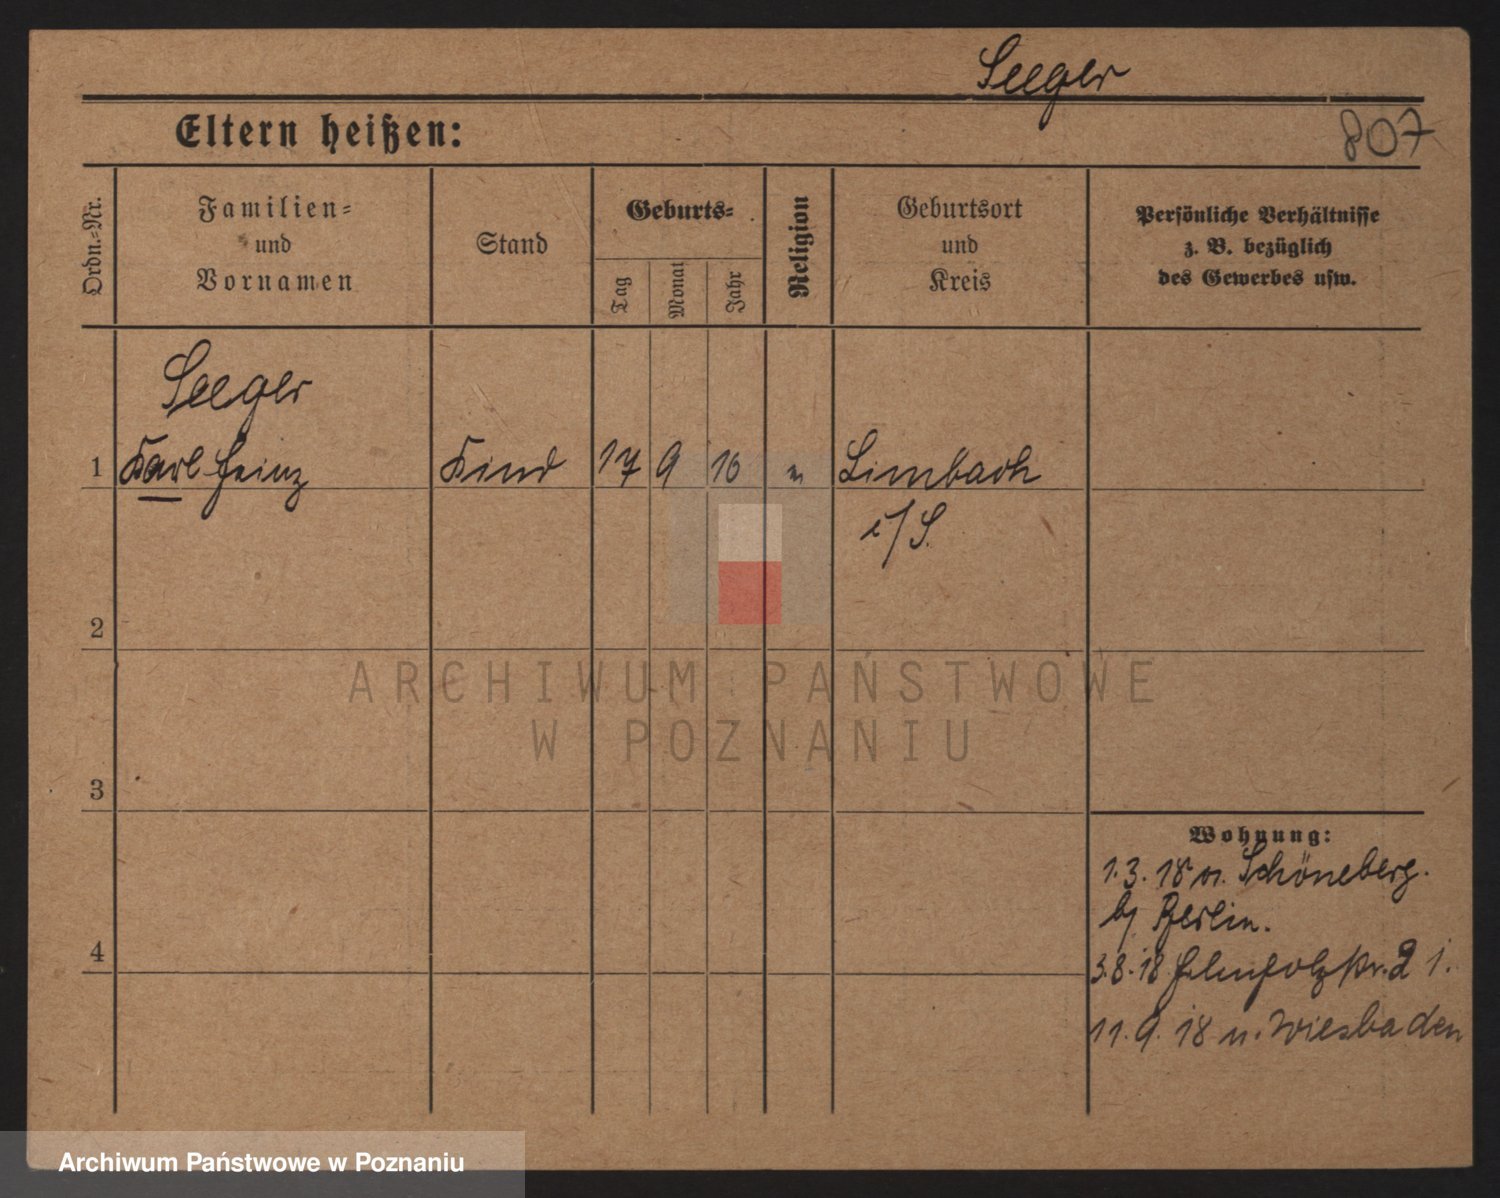 Seeger
Eltern heißen:
807
Ordn.=Nr.
Familien=
und
Vornamen
Stand
Geburts=
Tag
Monat
Jahr
Religion
Geburtsort
und
Kreis
Persönliche Verhältnisse
z. B. bezüglich
des Gewerbes usw.
Seeger
1 Karl Heinz Kind 17 9 16 Limbach
i/S.
2
ARCHIWUM PAŃSTWOWE
W POZNANIU
3
Wohnung:
1.3.18 n. Schöneberg.
b/ Berlin.
4
3.8.18 Helmholzstr. 2 I.
11.9.18 n. Wiesbaden
Archiwum Państwowe w Poznaniu